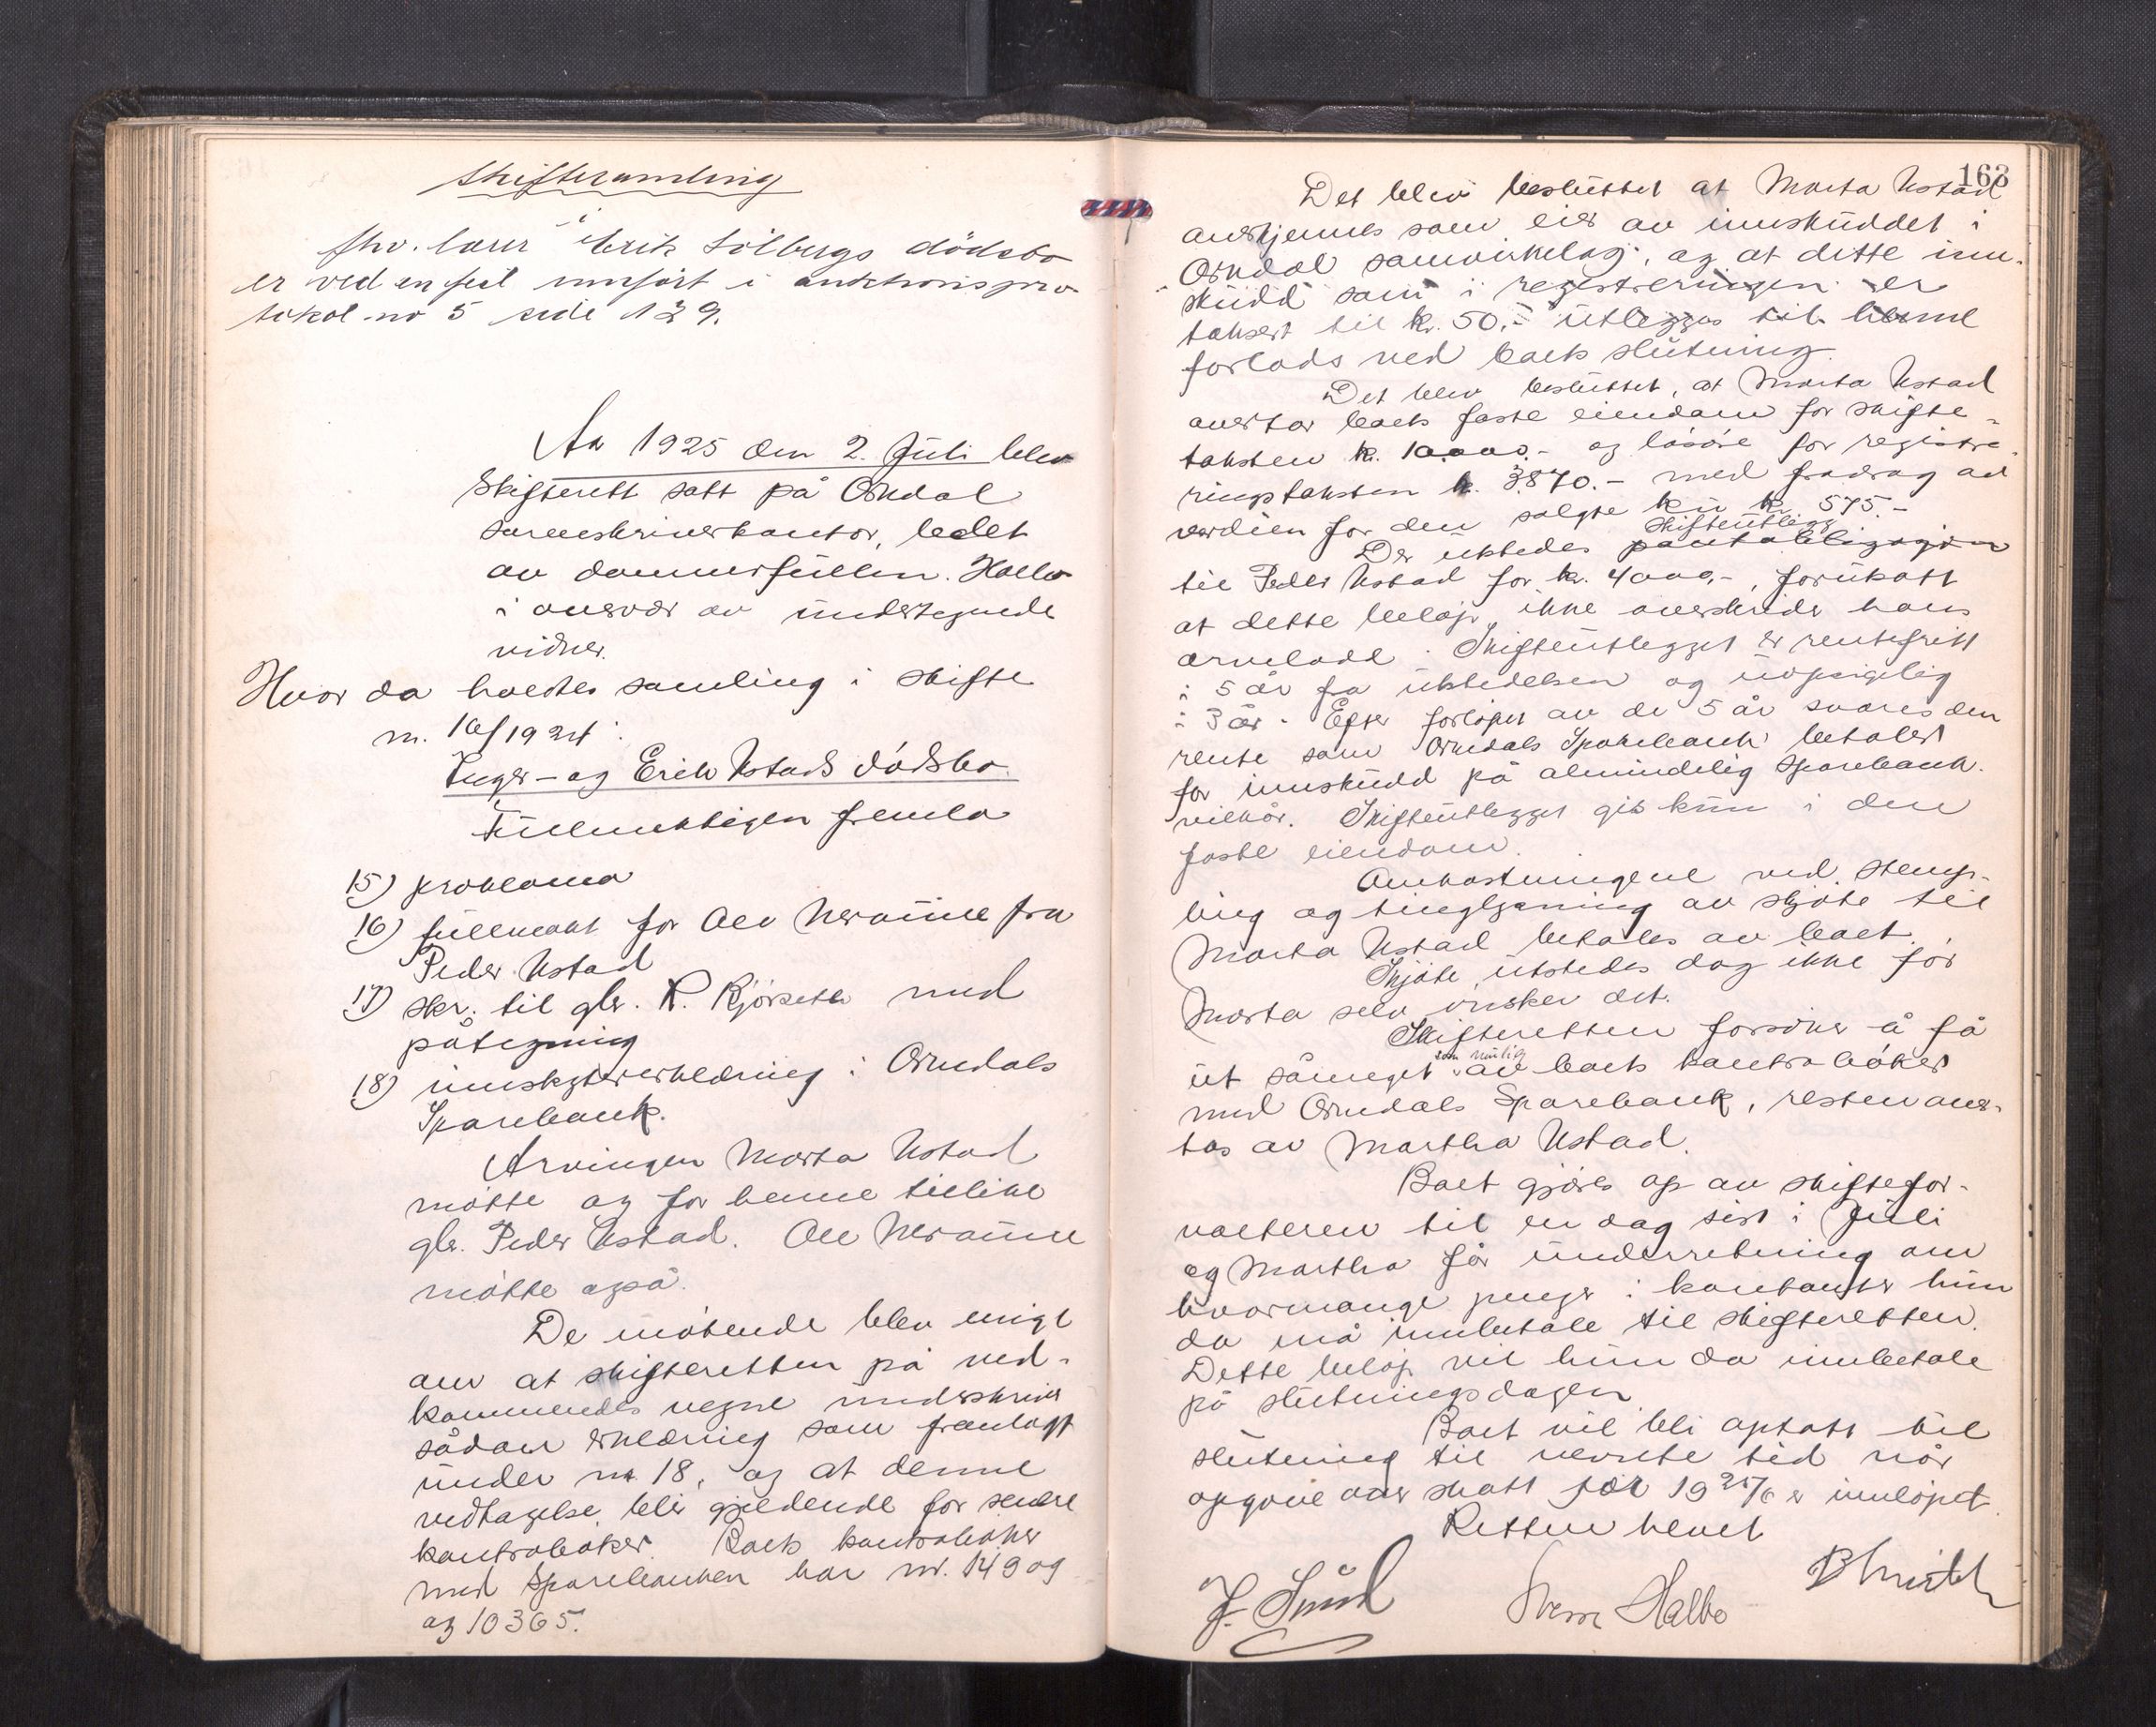 Skiftesamling
i
fhv. lensm. Erik Solbergs dödsbo
er ved en feil innført i auktionspro-
tokol no 5 side 139.
År 1925 den 2. Juli blev
Skifterett satt på Orkdal
sorenskriverkontor, ledet
av dommerfullm. Halbo
i overvær av undertegnede
vidner.
Hvor da holdtes samling i skifte
nr. 16/1924:
Inger- og Erik Ustads dödsbo.
Fullmektigen fremla
15) proklama
16) fullmakt for Ole Neraune fra
Peder Ustad
17) skr. til gbr. P. Kjörseth med
påtegning
18) innskytererklæring i Orkdals
Sparebank.
Arvingen Marta Ustad
møtte og for henne tillike
gbr. Peder Ustad. Ole Neraune
møtte også.
De møtende blev enige
om at skifteretten på ved-
kommendes vegne underskriver
sådan erklæring som fremlagt
under nr. 18, og at denne
vedtagelse blir gjeldende for senere
kontrabøker. Boets kontrabøker
med Sparebanken har nr. 149 og
og 10365.
163
Det blev besluttet at Marta Ustad
anerkjennes som eier av innskuddet i
Orkdal samvirkelag, og at dette inn-
skudd som i registreringen er
taksert til kr. 50.- utlegges til henne
forlods ved boets slutning.
Det blev besluttet, at Marta Ustad
overtar boets faste eiendom for skifte-
taksten kr. 10.000.- og lösöre for registre-
ringstaksten kr. 3870.- med fradrag av
verdien for den solgte ku kr. 575.-
skifteutlegg
Der utstedes pantobligasjon
til Peder Ustad for kr. 4000,-, forutsatt
at dette beløp ikke overskrider hans
arvelodd. Skifteutlegget er rentefritt
i 5 år fra utstedelsen og uopsigelig
i 3 år. Efter forløpet av de 5 år svares den
rente som Orkdals Sparebank betaler
for innskudd på almindelig Sparebank-
vilkår. Skifteutlegget gis kun i den
faste eiendom.
Omkostningene ved stemp-
ling og tinglysning av skjøte til
Marta Ustad betales av boet.
Skjøte utstedes dog ikke før
Marta selv ønsker det.
Skifteretten forsøker å få
som mulig
ut såmeget av boets kontrabøker
med Orkdals Sparebank, resten over-
tas av Martha Ustad.
Boet gjøres op av skiftefor-
valteren til en dag sist i Juli
og Martha får underretning om
hvormange penger i kontanter hun
da må innbetale til skifteretten.
Dette beløp vil hun da innbetale
på slutningsdagen
Boet vil bli optatt til
slutning til nevnte tid når
opgave over skatt for 1925/6 er innløpet.
Retten hevet
J. Sund
Sverre Halbo